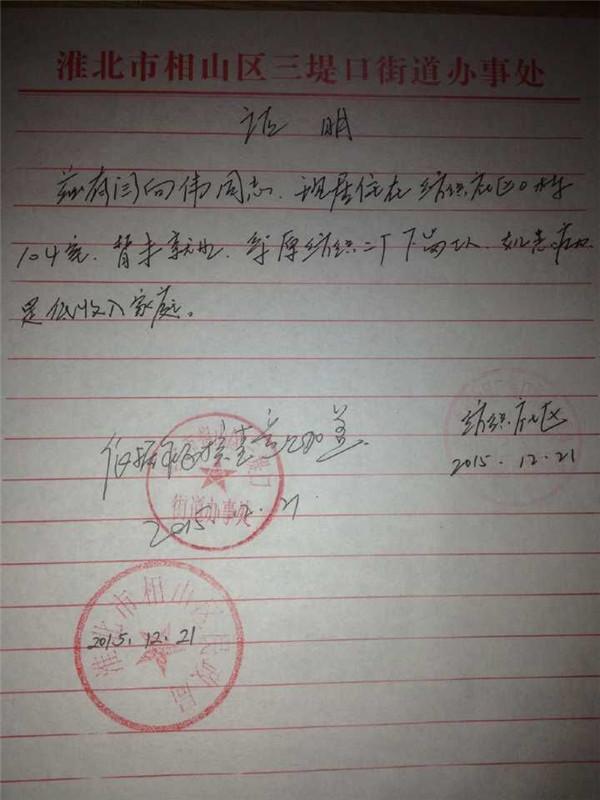 淮北市相山区三堤口街道办事处
证 明
兹有闫向伟同志、现居住在纺织社区
104室、暂未就业、系原纺织二厂下岗工人、
是低收入家庭。
纺织社区
2015.12.21
街道办事处
2015.12.21
淮北市相山区民政局
2015.12.21